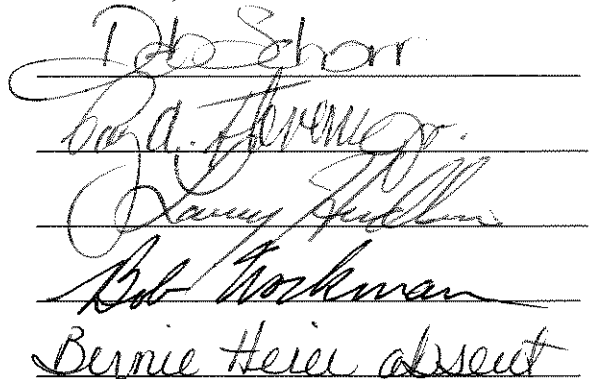 Deb Schorr
Ray A. Stevens Jr.
Larry Hudkins
Bob Workman
Bernie Heier absent